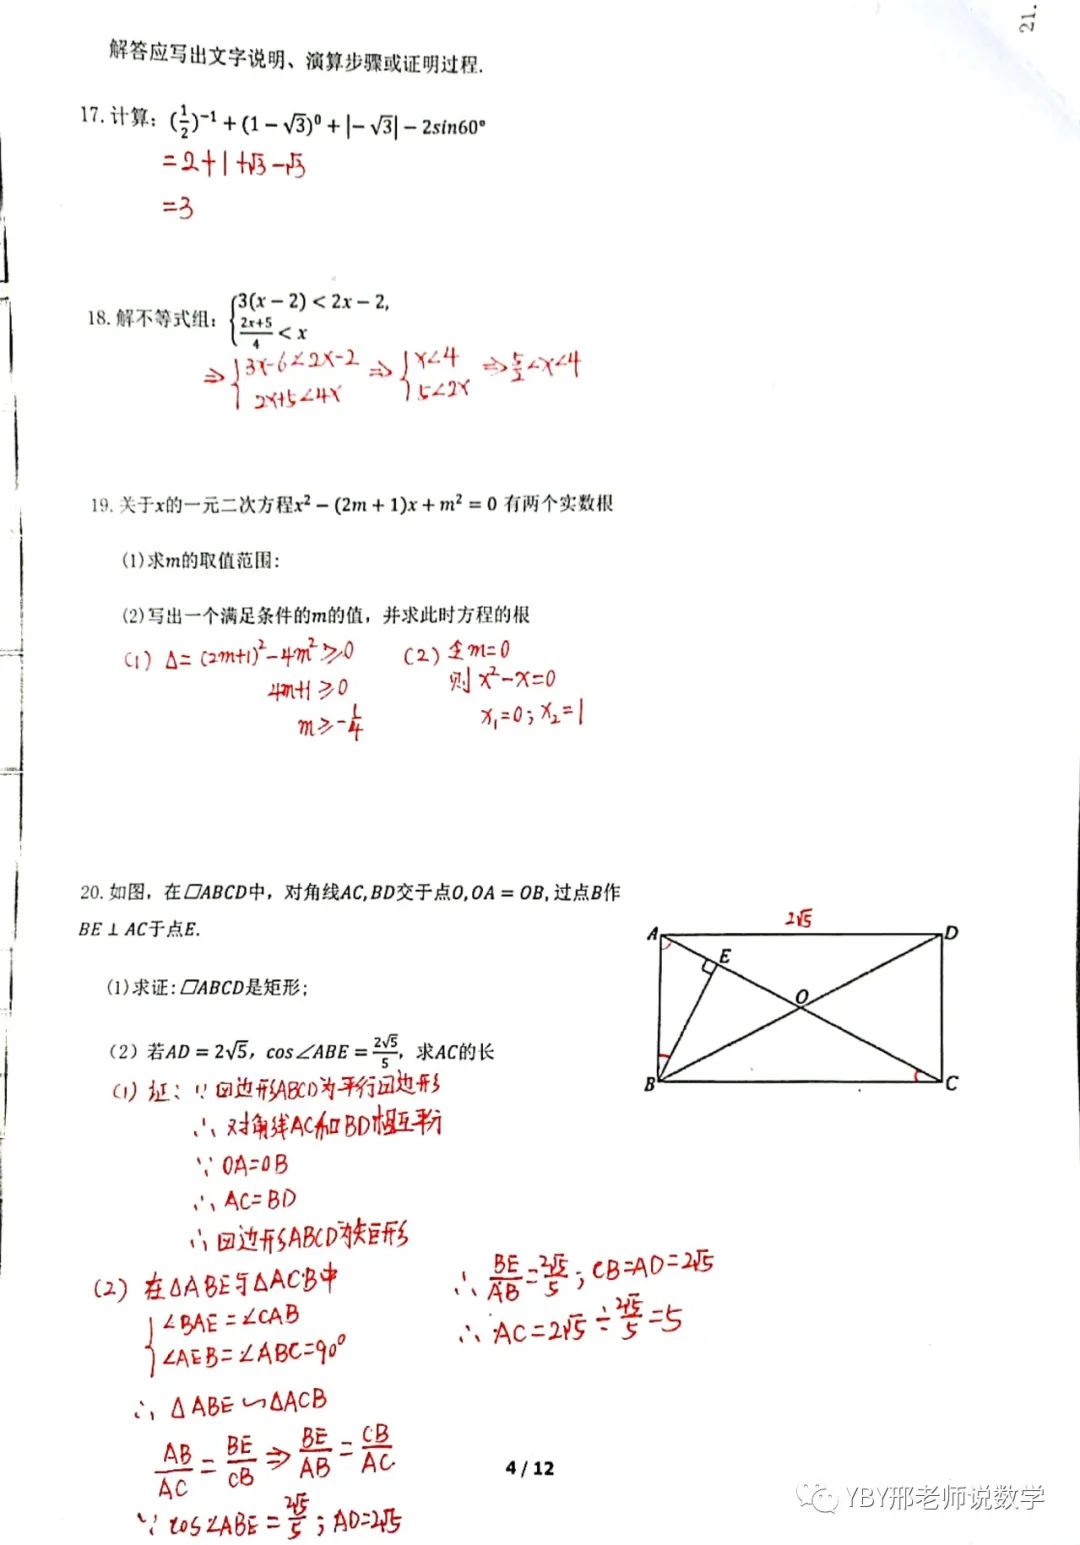 21.
解答应写出文字说明、演算步骤或证明过程.
17.计算：(1/2)⁻¹ + (1 − √3)⁰ + |−√3| − 2sin60°
=2+1+√3−√3
=3
18.解不等式组：{3(x − 2) < 2x − 2,
(2x+5)/4 < x
⇒{3x-6<2x-2 ⇒{x<4 ⇒5/2<x<4
2x+5<4x 5<2x
19.关于x的一元二次方程x² − (2m + 1)x + m² = 0 有两个实数根
(1)求m的取值范围：
(2)写出一个满足条件的m的值，并求此时方程的根
(1) Δ=(2m+1)²-4m²≥0
4m+1≥0
m≥-1/4
(2) 全m=0
则 x²-x=0
x₁=0；x₂=1
20.如图，在▱ABCD中，对角线AC,BD交于点O,OA = OB,过点B作
BE ⊥ AC于点E.
(1)求证:▱ABCD是矩形；
（2）若AD = 2√5，cos∠ABE = 2√5/5，求AC的长
2√5
A
D
E
O
B
C
(1) 证：∵四边形ABCD为平行四边形
∴对角线AC和BD相互平分
∵OA=OB
∴AC=BD
∴四边形ABCD为矩形
(2) 在ΔABE与ΔACB中
{∠BAE=∠CAB
∠AEB=∠ABC=90°
∴ΔABE∽ΔACB
AB/AC=BE/CB⇒BE/AB=CB/AC
∵cos∠ABE=2√5/5；AD=2√5
∴BE/AB=2√5/5；CB=AD=2√5
∴AC=2√5÷2√5/5=5
4 / 12
YBY邢老师说数学